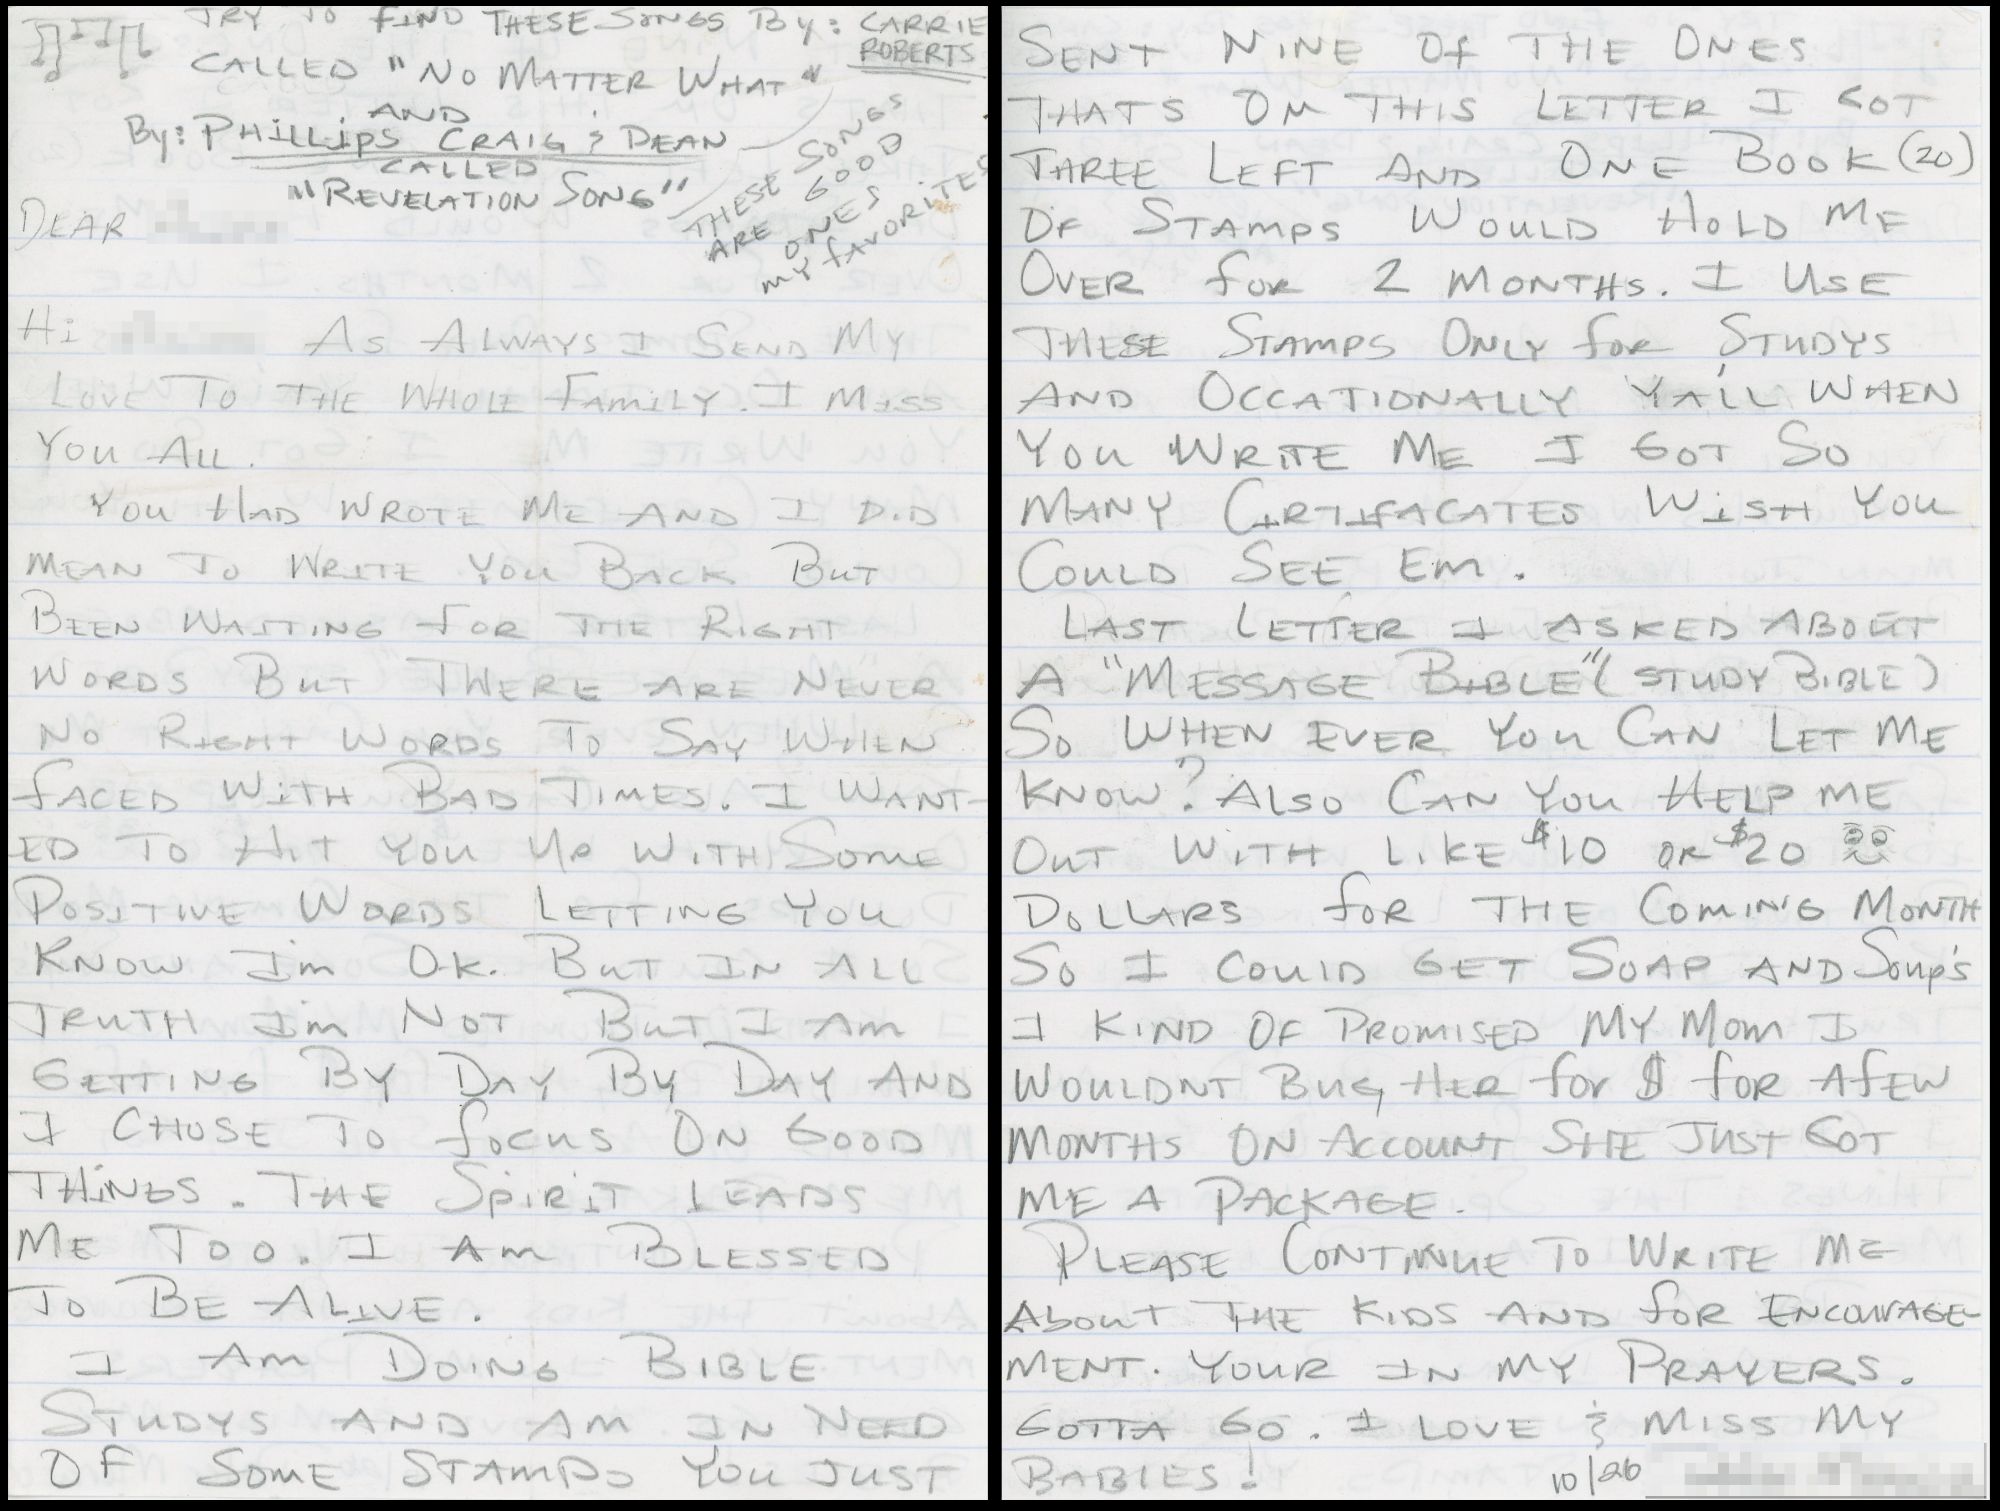 TRY TO FIND THESE SONGS BY: CARRIE
ROBERTS
CALLED "NO MATTER WHAT"
AND
By: PHILLIPS CRAIG & DEAN
CALLED
"REVELATION SONG"
THESE SONGS
ARE GOOD
ONES
MY FAVORITES
DEAR
Hi AS ALWAYS I SEND MY
LOVE TO THE WHOLE FAMILY. I MISS
YOU ALL.
YOU HAD WROTE ME AND I DID
MEAN TO WRITE YOU BACK BUT
BEEN WAITING FOR THE RIGHT
WORDS BUT THERE ARE NEVER
NO RIGHT WORDS TO SAY WHEN
FACED WITH BAD TIMES. I WANT-
ED TO HIT YOU UP WITH SOME
POSITIVE WORDS LETTING YOU
KNOW I'm OK. BUT IN ALL
TRUTH I'm NOT BUT I AM
GETTING BY DAY BY DAY AND
I CHOSE TO FOCUS ON GOOD
THINGS. THE SPIRIT LEADS
ME TOO. I AM BLESSED
TO BE ALIVE.
I AM DOING BIBLE
STUDYS AND AM IN NEED
OF SOME STAMPS YOU JUST
SENT NINE OF THE ONES
THATS ON THIS LETTER I GOT
THREE LEFT AND ONE BOOK (20)
OF STAMPS WOULD HOLD ME
OVER FOR 2 MONTHS. I USE
THESE STAMPS ONLY FOR STUDYS
AND OCCATIONALLY YA'LL WHEN
YOU WRITE ME I GOT SO
MANY CIRTIFACATES WISH YOU
COULD SEE EM.
LAST LETTER I ASKED ABOUT
A "MESSAGE BIBLE" (STUDY BIBLE)
SO WHEN EVER YOU CAN LET ME
KNOW? ALSO CAN YOU HELP ME
OUT WITH LIKE $10 OR $20
DOLLARS FOR THE COMING MONTH
SO I COULD GET SOAP AND SOUP'S
I KIND OF PROMISED MY MOM I
WOULDNT BUG HER FOR $ FOR A FEW
MONTHS ON ACCOUNT SHE JUST GOT
ME A PACKAGE.
PLEASE CONTINUE TO WRITE ME
ABOUT THE KIDS AND FOR ENCOURAGE-
MENT. YOUR IN MY PRAYERS.
GOTTA GO. I LOVE & MISS MY
BABIES! 10/26